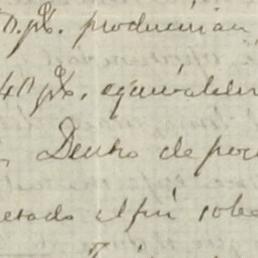 0 p%. producirían
40 p%. equivaldrí
Dentro de poc
etado el fin sobe